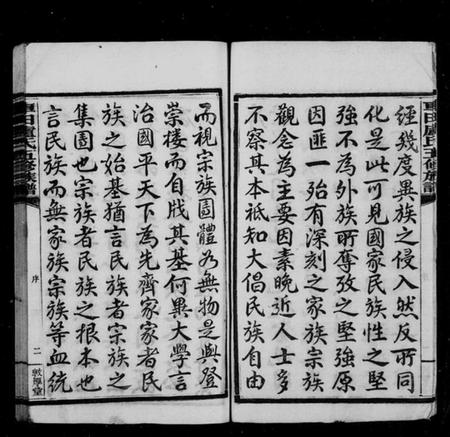 經幾度異族之侵入然反所同
化是此可見國家民族性之堅
強不為外族所奪攷之堅強原
因匪一殆有深刻之家族宗族
觀念為主要因素晚近人士多
不察其本祇知大倡民族自由
而視宗族團體為無物是與登
崇樓而自戕其基何異大學言
治國平天下為先齊家家者民
族之始基猶言民族者宗族之
集團也宗族者民族之根本也
言民族而無家族宗族等血統
車田盧氏五修族譜
序
二
敦厚堂